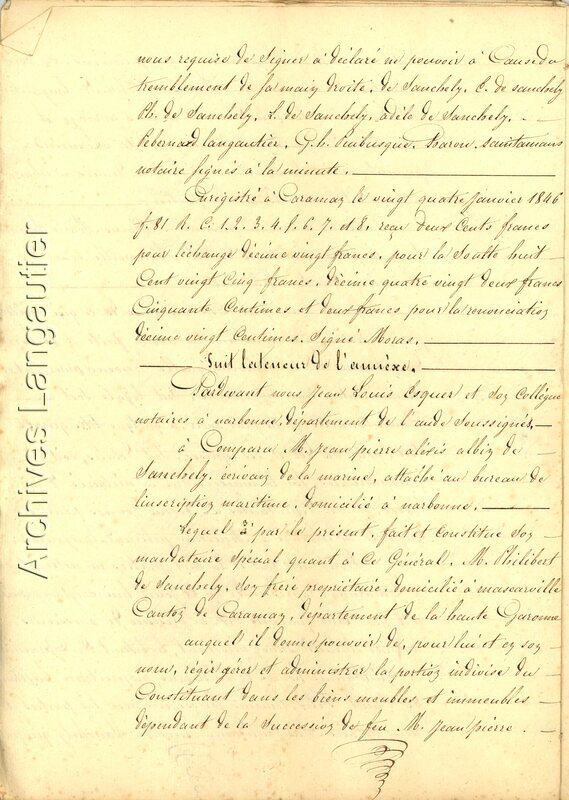 nous requise de signer à déclaré ne pouvoir à Cause du
tremblement de sa main droite, de Sanchely, C. de sanchely
Ph. de Sanchely, de Sanchely, adèle de Sanchely, -
Pebernard langautier, G.h. Puibusque, Baron, saintamans
notaire signés à la minute.
Enregistré à Caraman le vingt quatre Janvier 1846
f. 81 R. C. 1. 2. 3. 4. 5. 6. 7. et 8, reçu deux Cents francs
pour léchange décime vingt francs, pour la soulte huit
Cent vingt Cinq francs, décime quatre vingt deux francs
Cinquante Centimes et deux francs pour la renonciation
décime vingt Centimes. Signé Moras,
Suit lateneur de l'annèxe.
Pardevant nous Jean Louis Esquer et son Collègue
notaires à narbonne, département de l'aude soussignés,
à Comparu M. Jean pierre alexis albin de
Sanchely, écrivain de la marine, attaché au bureau de
linscription maritime, domicilié à narbonne,
Lequel à par le present, fait et constitue son
mandataire spécial quant à Ce Général, M. Philibert
de Sanchely, son frère propriétaire, domicilié à mascarville
Canton de Caraman, département de la haute Garonne
auquel il donne pouvoir de, pour lui et en son
nom, régir gérer et administrer la portion indivise du
Constituant dans les biens meubles et immeubles
dépendant de la Succession de feu M. Jean pierre. -
Archives Langautier